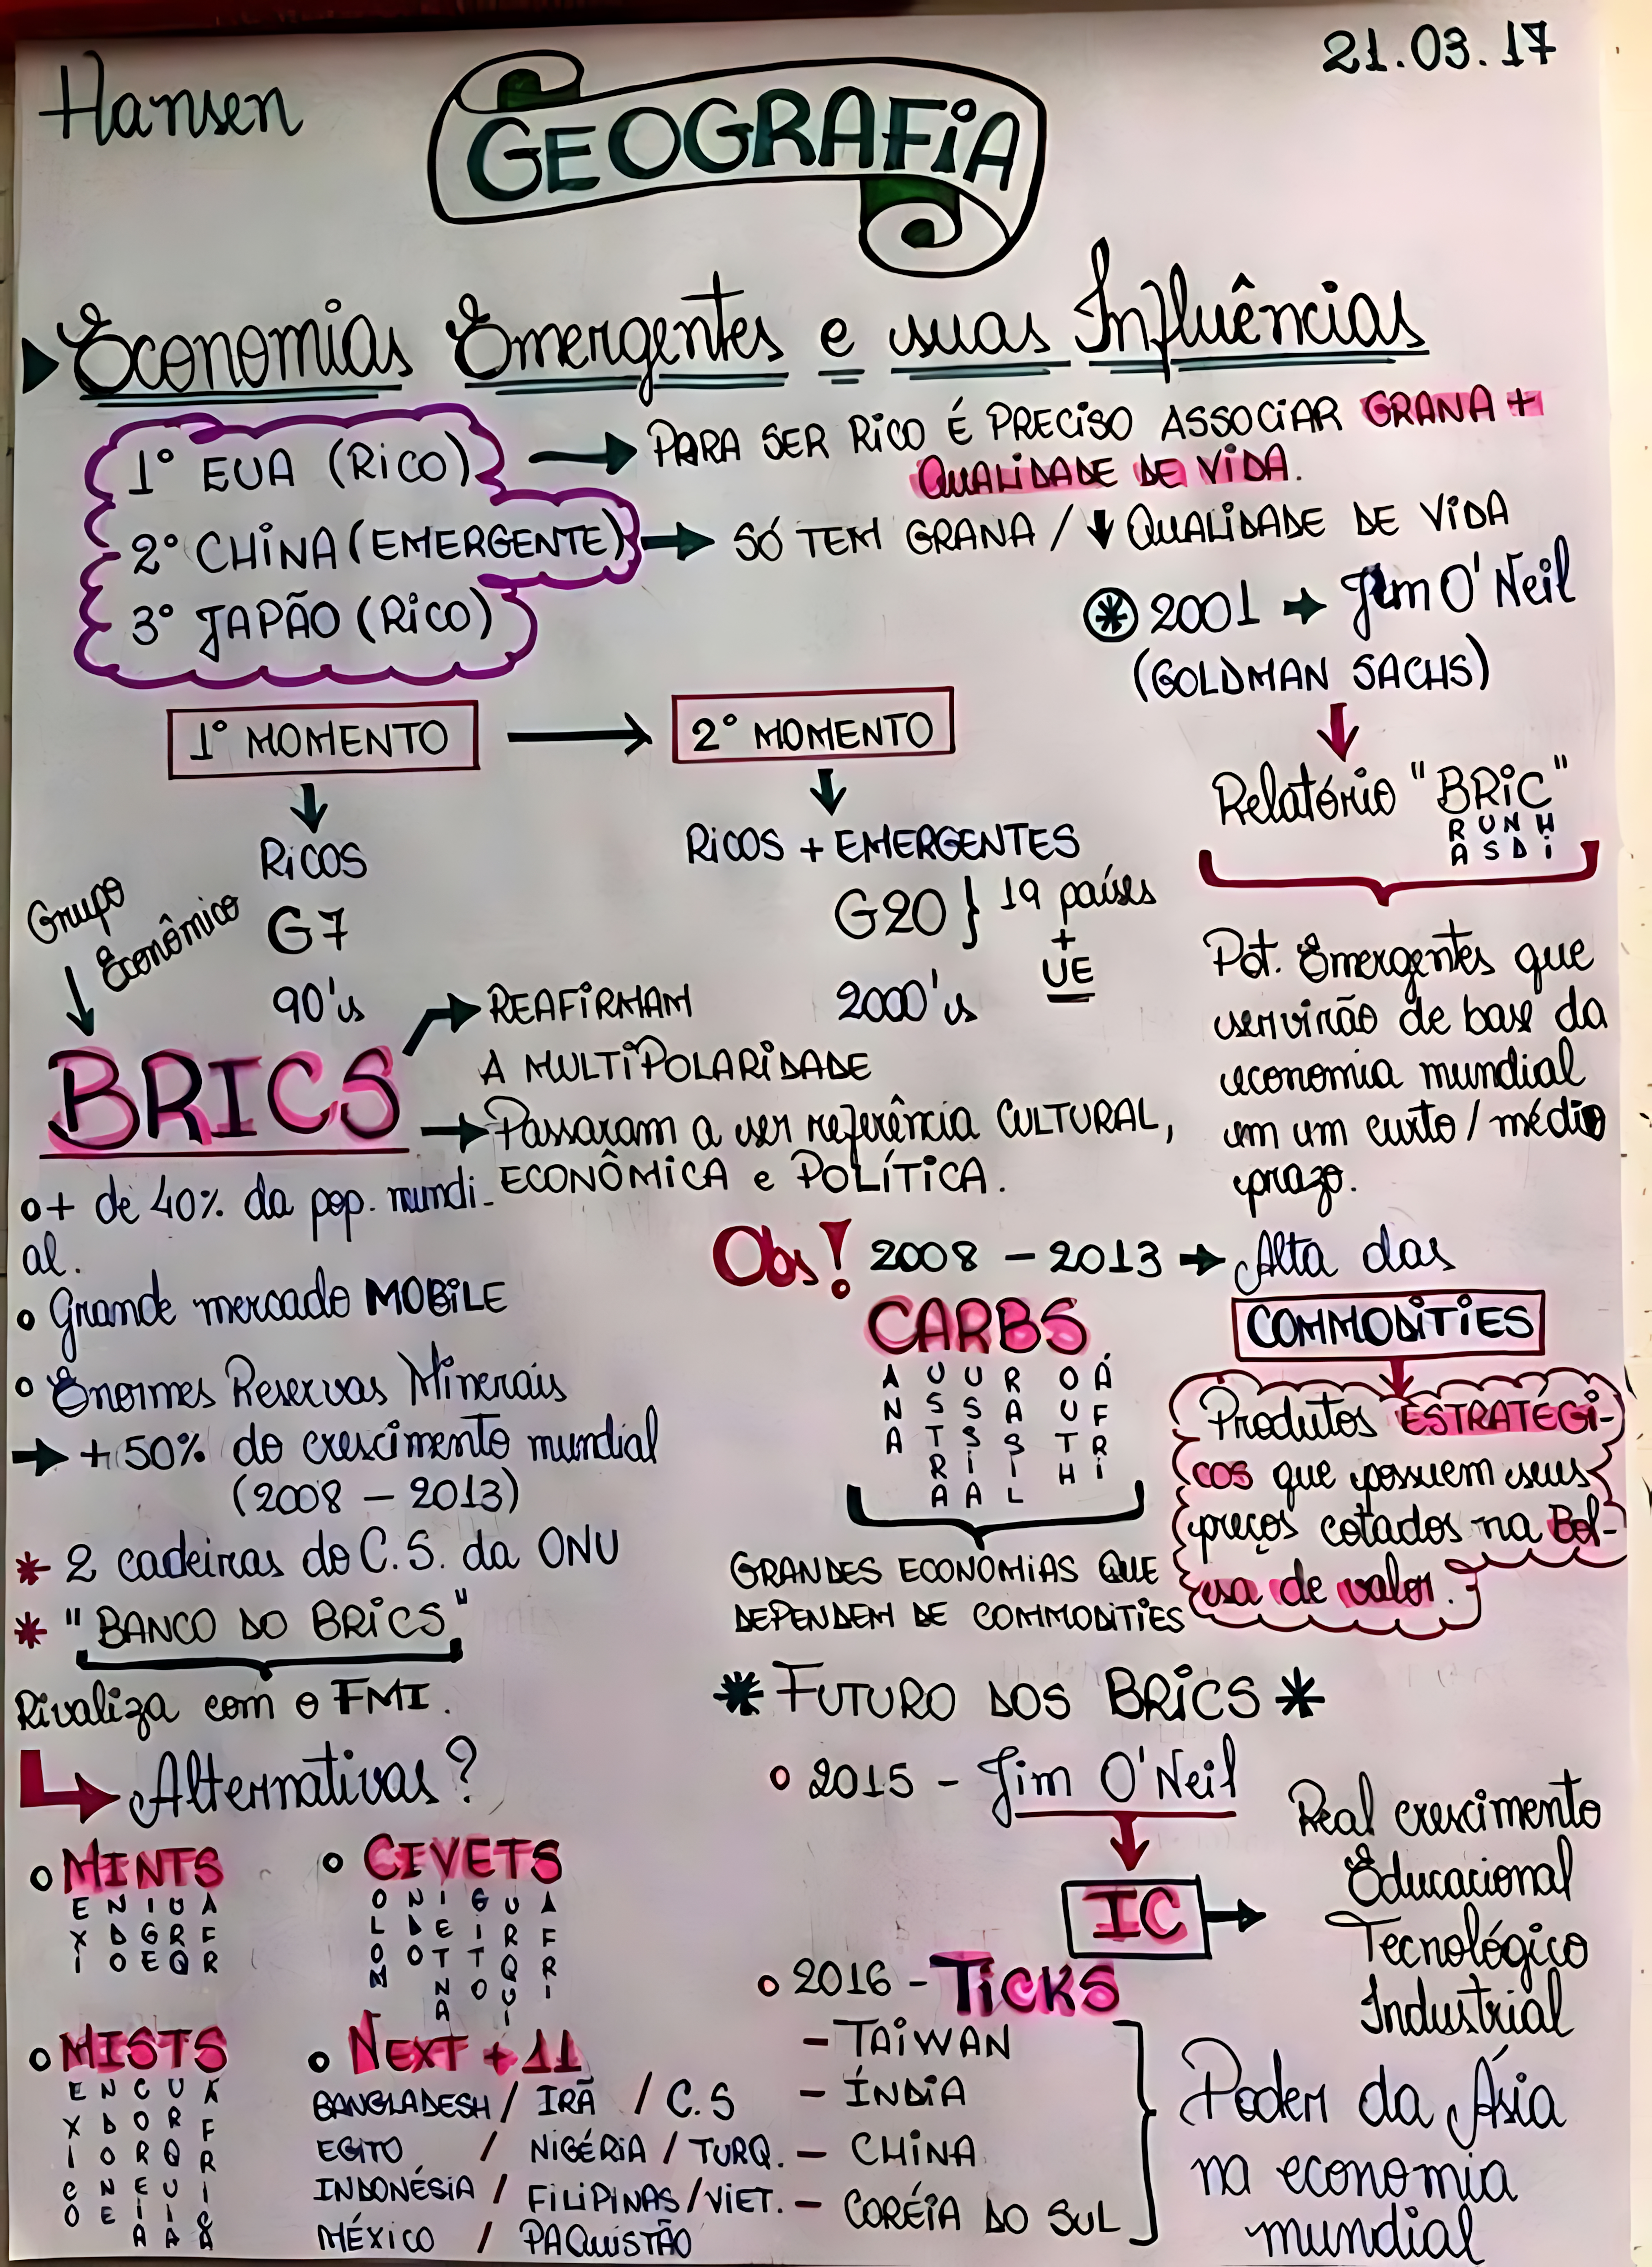 Hansen
21.03.17
GEOGRAFiA
Economias Emergentes e suas Influências
1° EUA (RiCO)
PARA SER RiCO É PRECiSO ASSOCiAR GRANA +
QUALiDADE DE ViDA.
2° CHiNA (EMERGENTE)
SÓ TEM GRANA / ↓ QUALiDADE DE ViDA
3° JAPÃO (RiCO)
2001 → Jim O'Neil
(GOLDMAN SACHS)
1° MOMENTO → 2° MOMENTO
RiCOS
G7
90's
RiCOS + EMERGENTES
G20 } 19 países
+
UE
2000's
Relatório "BRiC"
R U N H
A S D i
Pot. Emergentes que
servirão de base da
economia mundial
em um curto / médio
prazo.
Grupo
Econômico
BRICS
→ REAFiRMAM
A MULTiPOLARiDADE
→ Passaram a ser referência CULTURAL,
ECONÔMiCA e POLÍTiCA.
o + de 40% da pop. mundi-
al.
o Grande mercado MOBiLE
o Enormes Reservas Minerais
→ + 50% do crescimento mundial
(2008 - 2013)
* 2 cadeiras do C.S. da ONU
* "BANCO DO BRiCS"
Rivaliza com o FMI.
Alternativas?
Obs! 2008 - 2013 → Alta das
COMMODiTiES
Produtos ESTRATÉGi-
COS que possuem seus
preços cotados na Bol-
sa de valor.
CARBS
A U U R O Á
N S S A U F
A T S S T R
R i I H i
A A L
GRANDES ECONOMiAS QUE
DEPENDEM DE COMMODiTiES
* FUTURO DOS BRiCS *
o 2015 - Jim O'Neil
IC →
Real crescimento
Educacional
Tecnológico
Industrial
o 2016 - TiCKS
- TAiWAN
- ÍNDiA
- CHiNA
- CORÉiA DO SUL
Poder da Ásia
na economia
mundial
o MiNTS
E N I U A
X D G R F
I O E Q R
o CIVETS
O N I G U A
L D E I R F
O O T T Q R
M N O U I
A I
o MISTS
E N C U A
X D O R F
I O R Q R
C N E U I
O E I I C
A A A
o NEXT + 11
BANGLADESH / IRÃ / C.S
EGITO / NiGÉRiA / TURQ.
INDONÉSiA / FiLiPiNAS / ViET.
MÉXiCO / PAQUiSTÃO